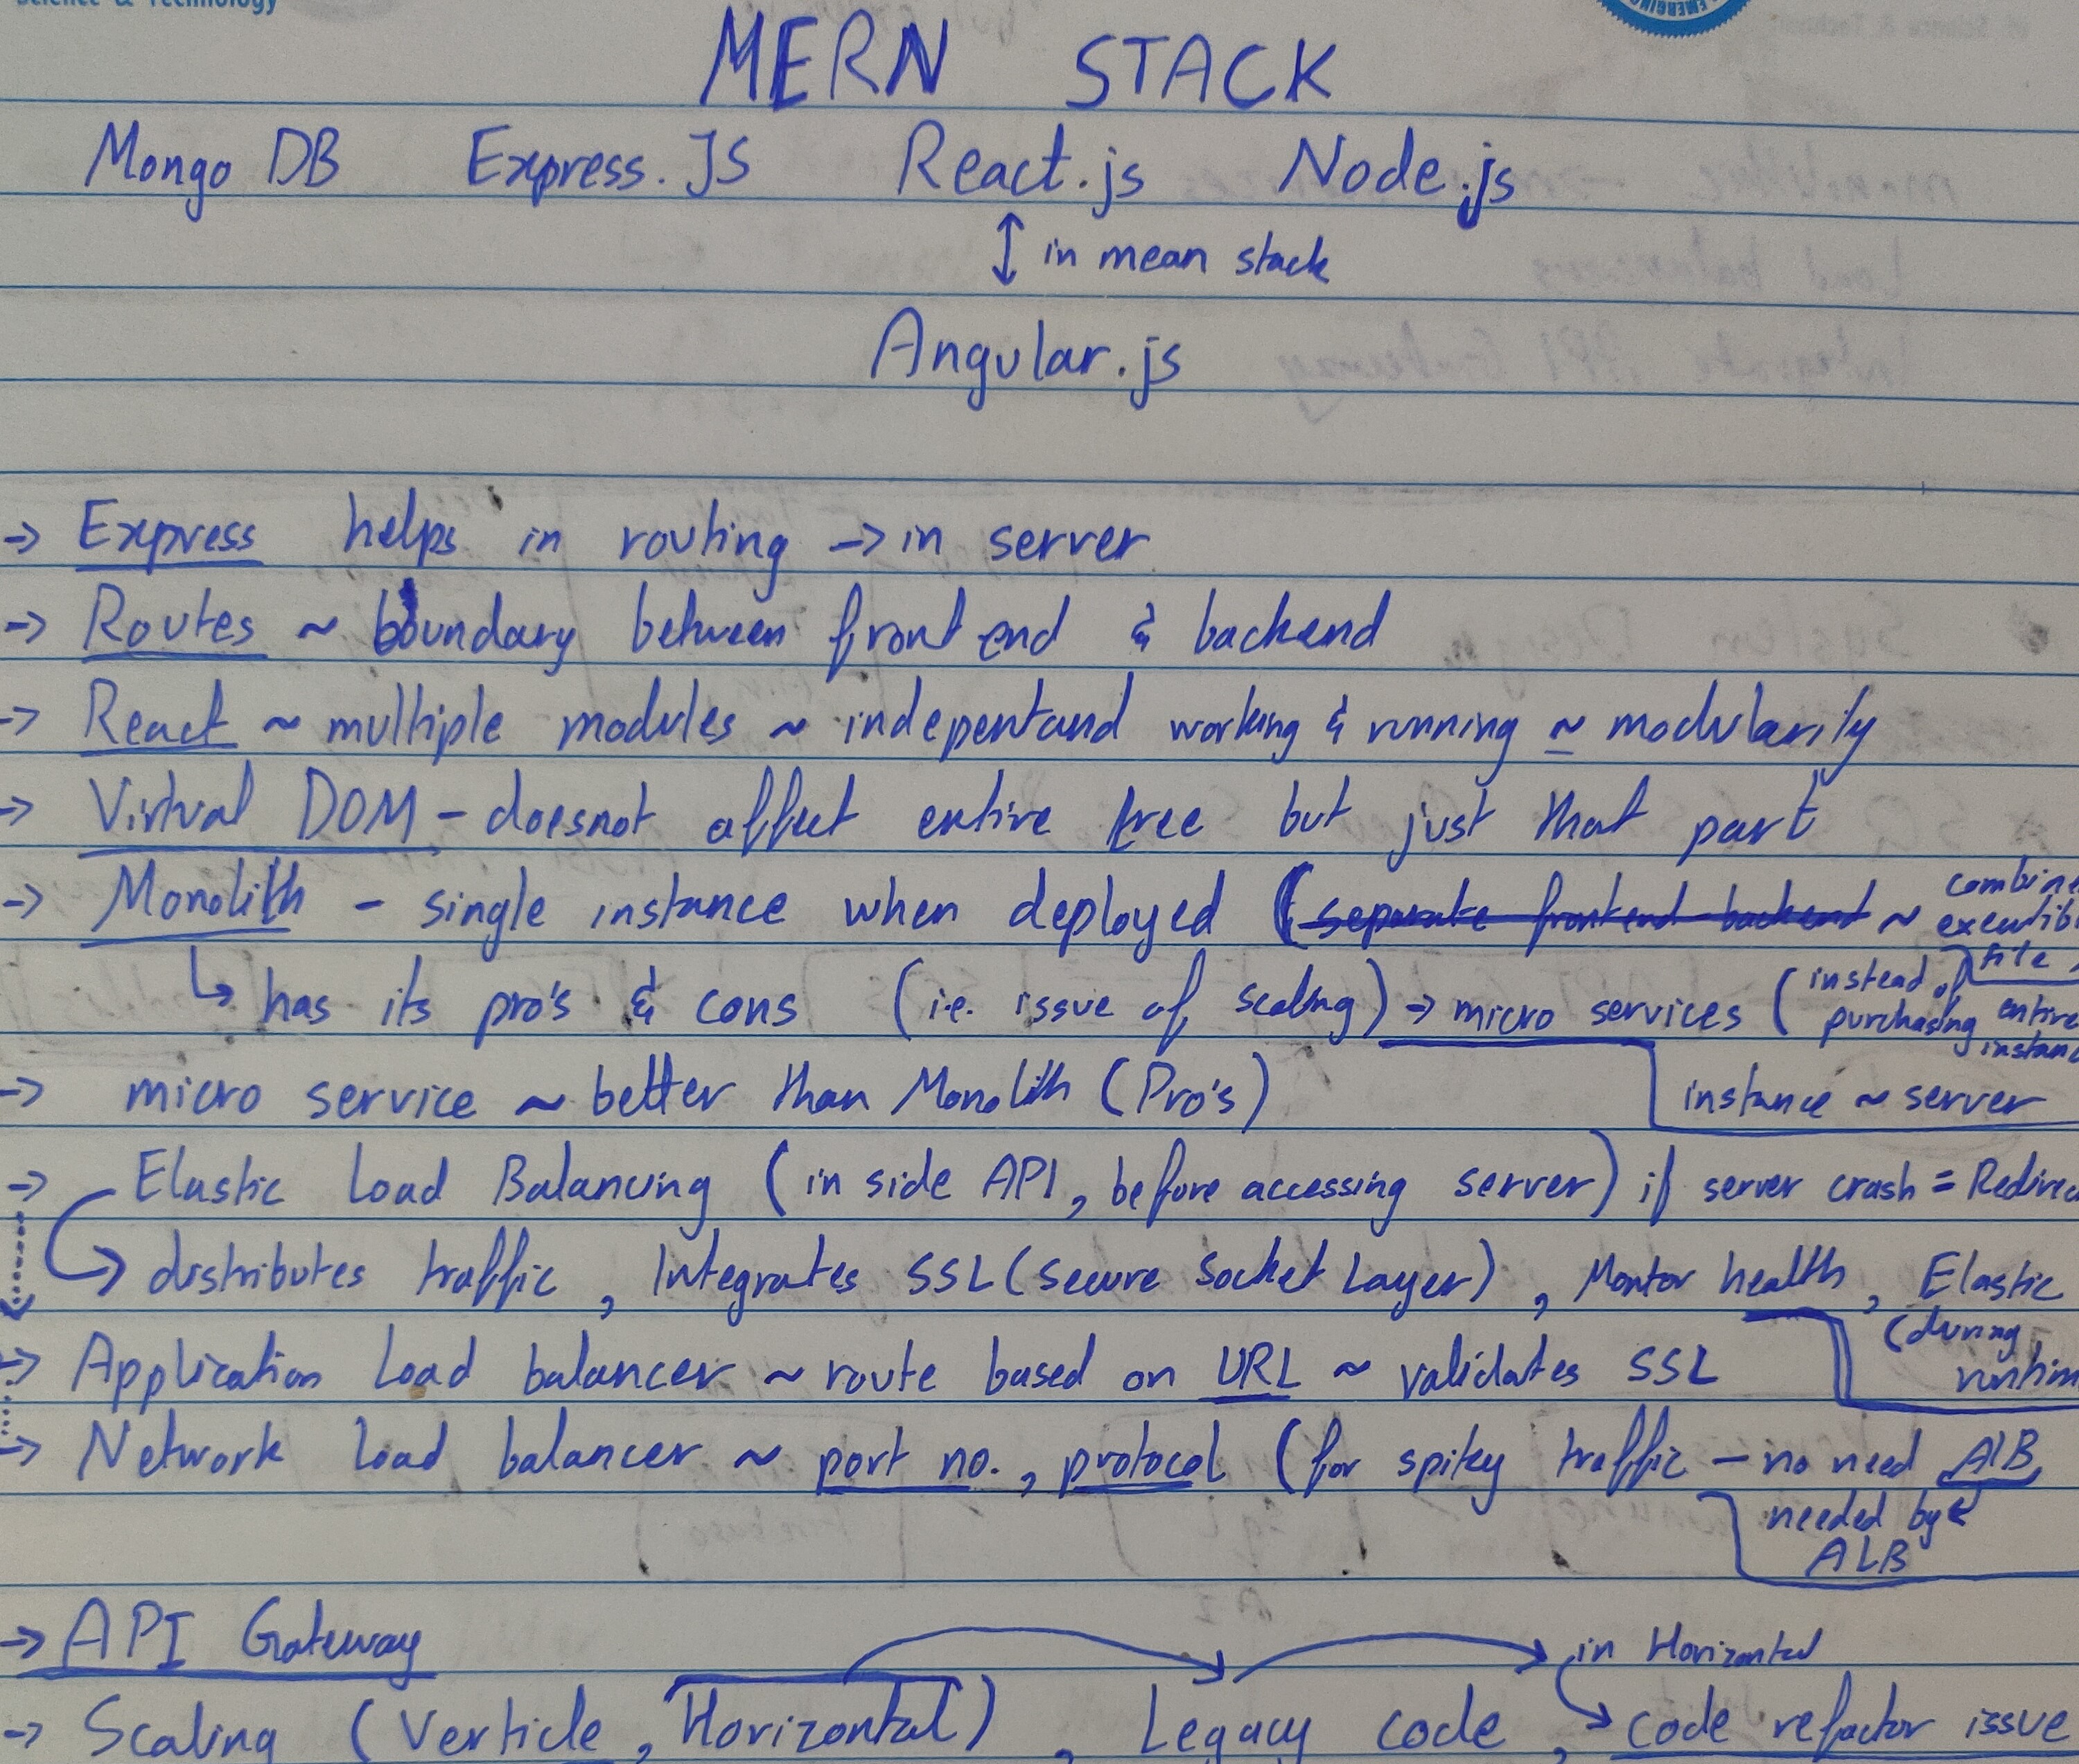 Science & Technology
EMERGING
MERN STACK
Mongo DB Express.JS React.js Node.js
↕ in mean stack
Angular.js
-> Express helps in routing -> in server
-> Routes ~ boundary between front end & backend
-> React ~ multiple modules ~ indepentand working & running ~ modularity
-> Virtual DOM - doesnot affect entire tree but just that part
-> Monolith - single instance when deployed (separate frontend backend ~ combine
file
↳ has its pro's & cons (i.e. issue of scaling) -> micro services (instead of purchasing entire
-> micro service ~ better than Monolith (Pro's)
instance ~ server
-> Elastic Load Balancing (in side API, before accessing server) if server crash = Redirec
-> distributes traffic, Integrates SSL (Secure Socket Layer), Montor health, Elastic
(during
-> Application Load balancer ~ route based on URL ~ validates SSL
-> Network Load balancer ~ port no., protocol (for spiky traffic - no need ALB
needed by
ALB
-> API Gateway
in Horizontal
-> Scaling (Verticle, Horizontal), Legacy code, code refactor issue